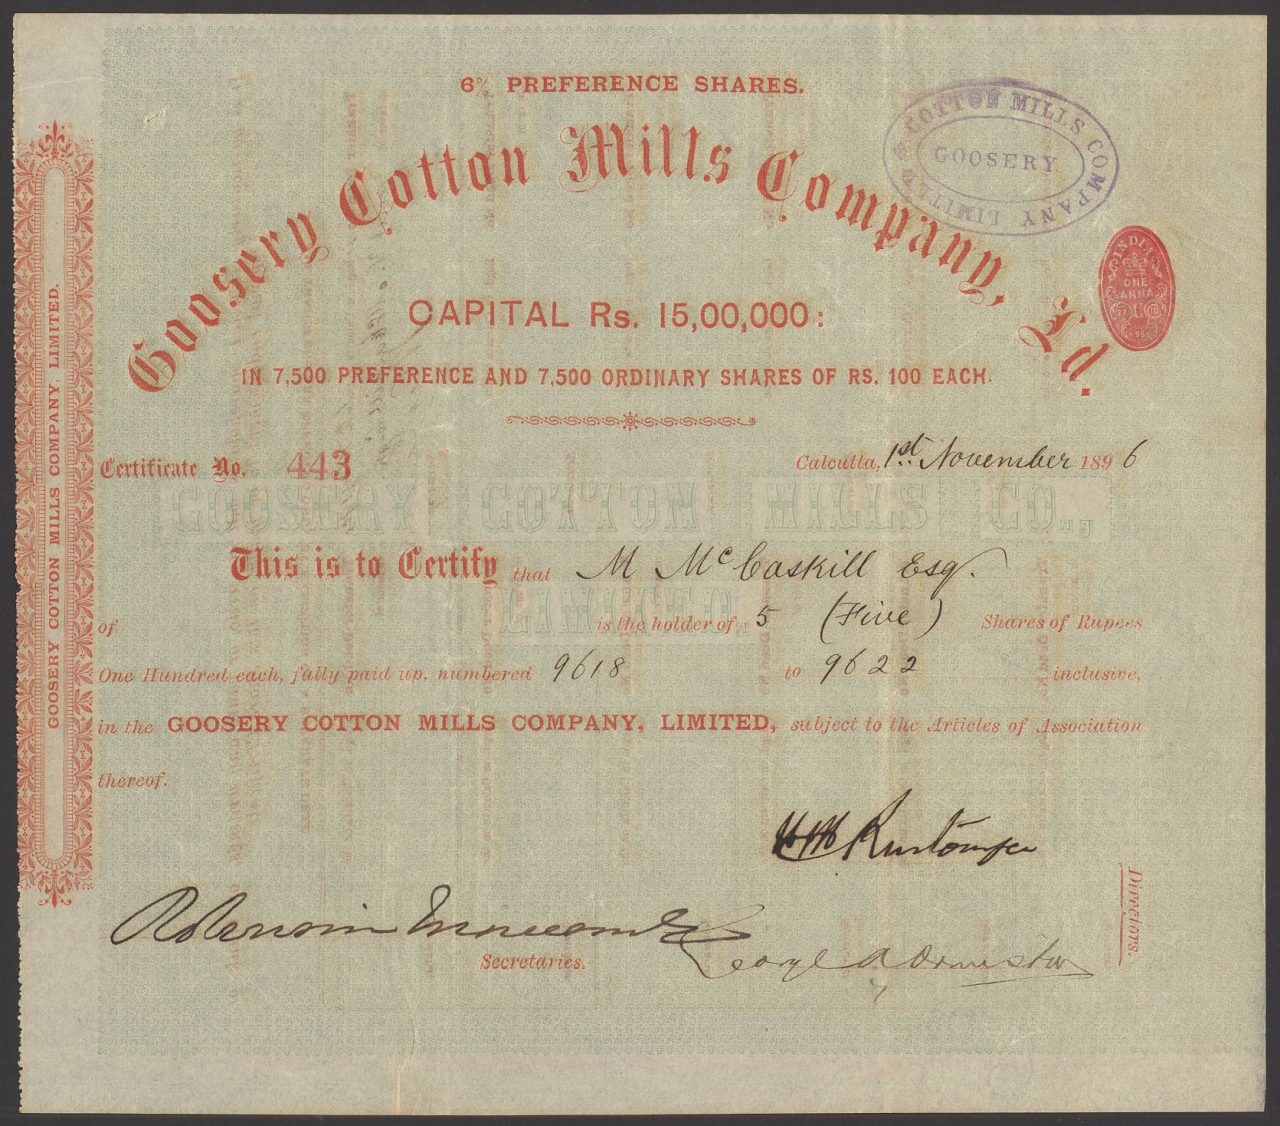 6% PREFERENCE SHARES.
Goosery Cotton Mills Company, Ld.
COTTON MILLS COMPANY LIMITED
GOOSERY
INDIA
ONE
ANNA
CAPITAL Rs. 15,00,000:
IN 7,500 PREFERENCE AND 7,500 ORDINARY SHARES OF RS. 100 EACH.
Certificate No. 443
Calcutta, 1st. November 1896
GOOSERY COTTON MILLS CO.
LIMITED.
This is to Certify that M McCaskill Esq.
of is the holder of 5 (Five) Shares of Rupees
One Hundred each, fully paid up, numbered 9618 to 9622 inclusive,
in the GOOSERY COTTON MILLS COMPANY, LIMITED, subject to the Articles of Association
thereof.
Rustomjee
George Ormiston
Directors.
Secretaries.
GOOSERY COTTON MILLS COMPANY, LIMITED.